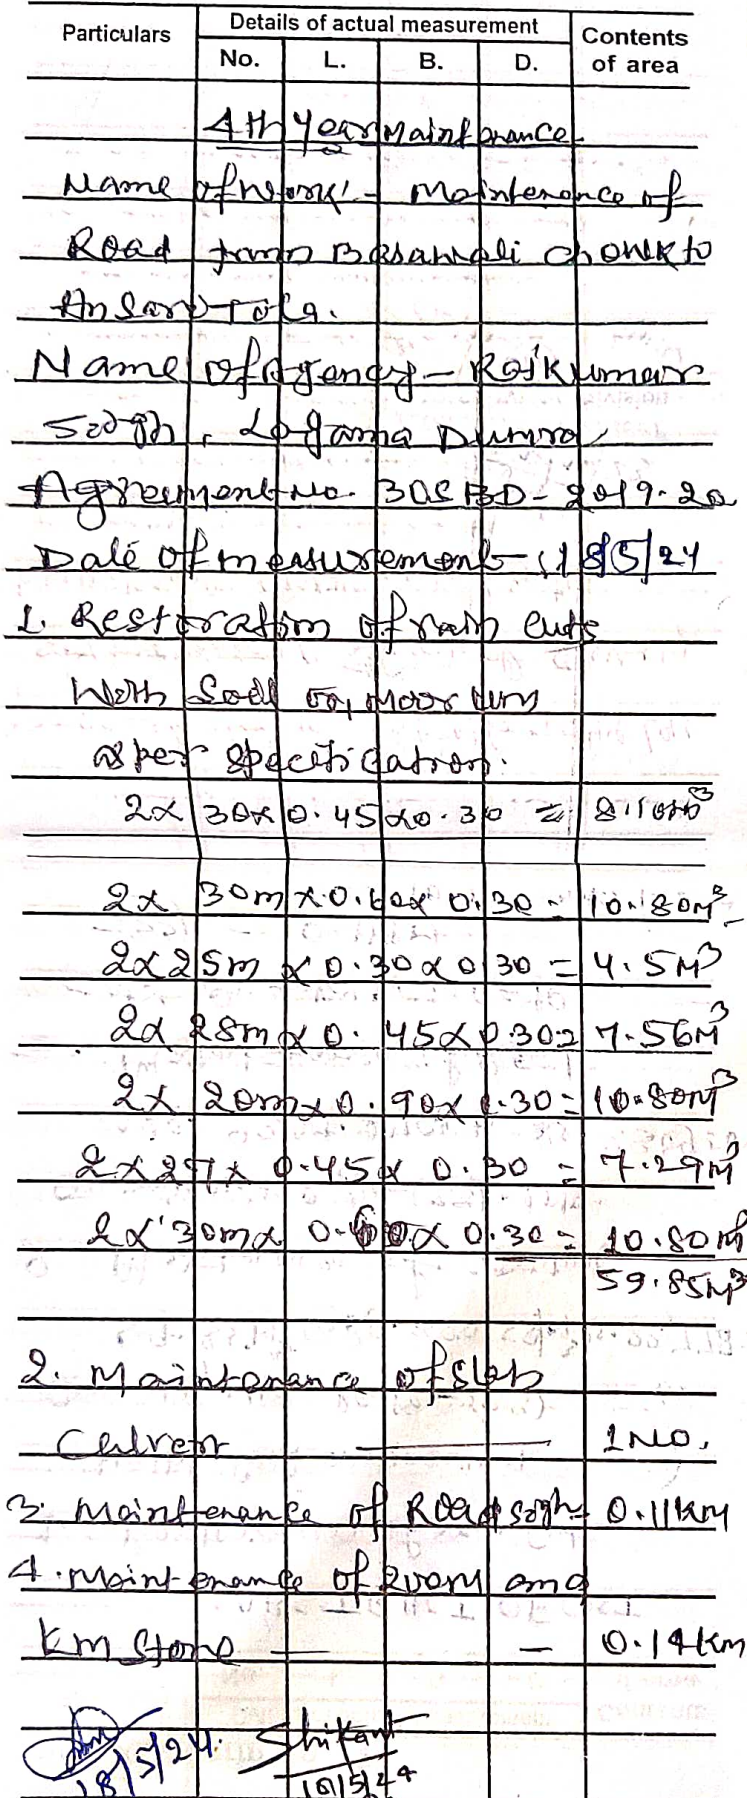 Particulars Details of actual measurement Contents of area
No. L. B. D.
4th Year Maintenance
Name of work:- Maintenance of
Road from Basantoli chowk to
Ansari Tola.
Name of Agency - Rajkumar
Singh, Logama Dumra
Agreement No. 30SBD-2019-20
Date of measurement - 18/5/24
1. Restoration of rain cuts
With Soil or moorum
as per specification.
2x 30x 0.45 x0.30 = 8.10m³
2x 30m x 0.60x 0.30 = 10.80M³
2x25m x 0.30x0.30 = 4.5M³
2x 28m x 0.45x0.30= 7.56M³
2x 20m x 0.90x 0.30= 10.80M³
2x27x 0.45x 0.30 = 7.29M³
2x 30mx 0.60x 0.30 = 10.80M³
59.85M³
2. Maintenance of Slab
Culvert — 1No.
3. Maintenance of Road sign= 0.11km
4. Maintenance of 200m and
Km Stone — — 0.14km
18/5/24. Shikant
18/5/24